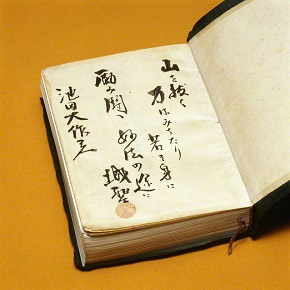 山を抜く
力はみちたり
若き身に
励み闘へ
妙法の途に
城聖
池田大作君